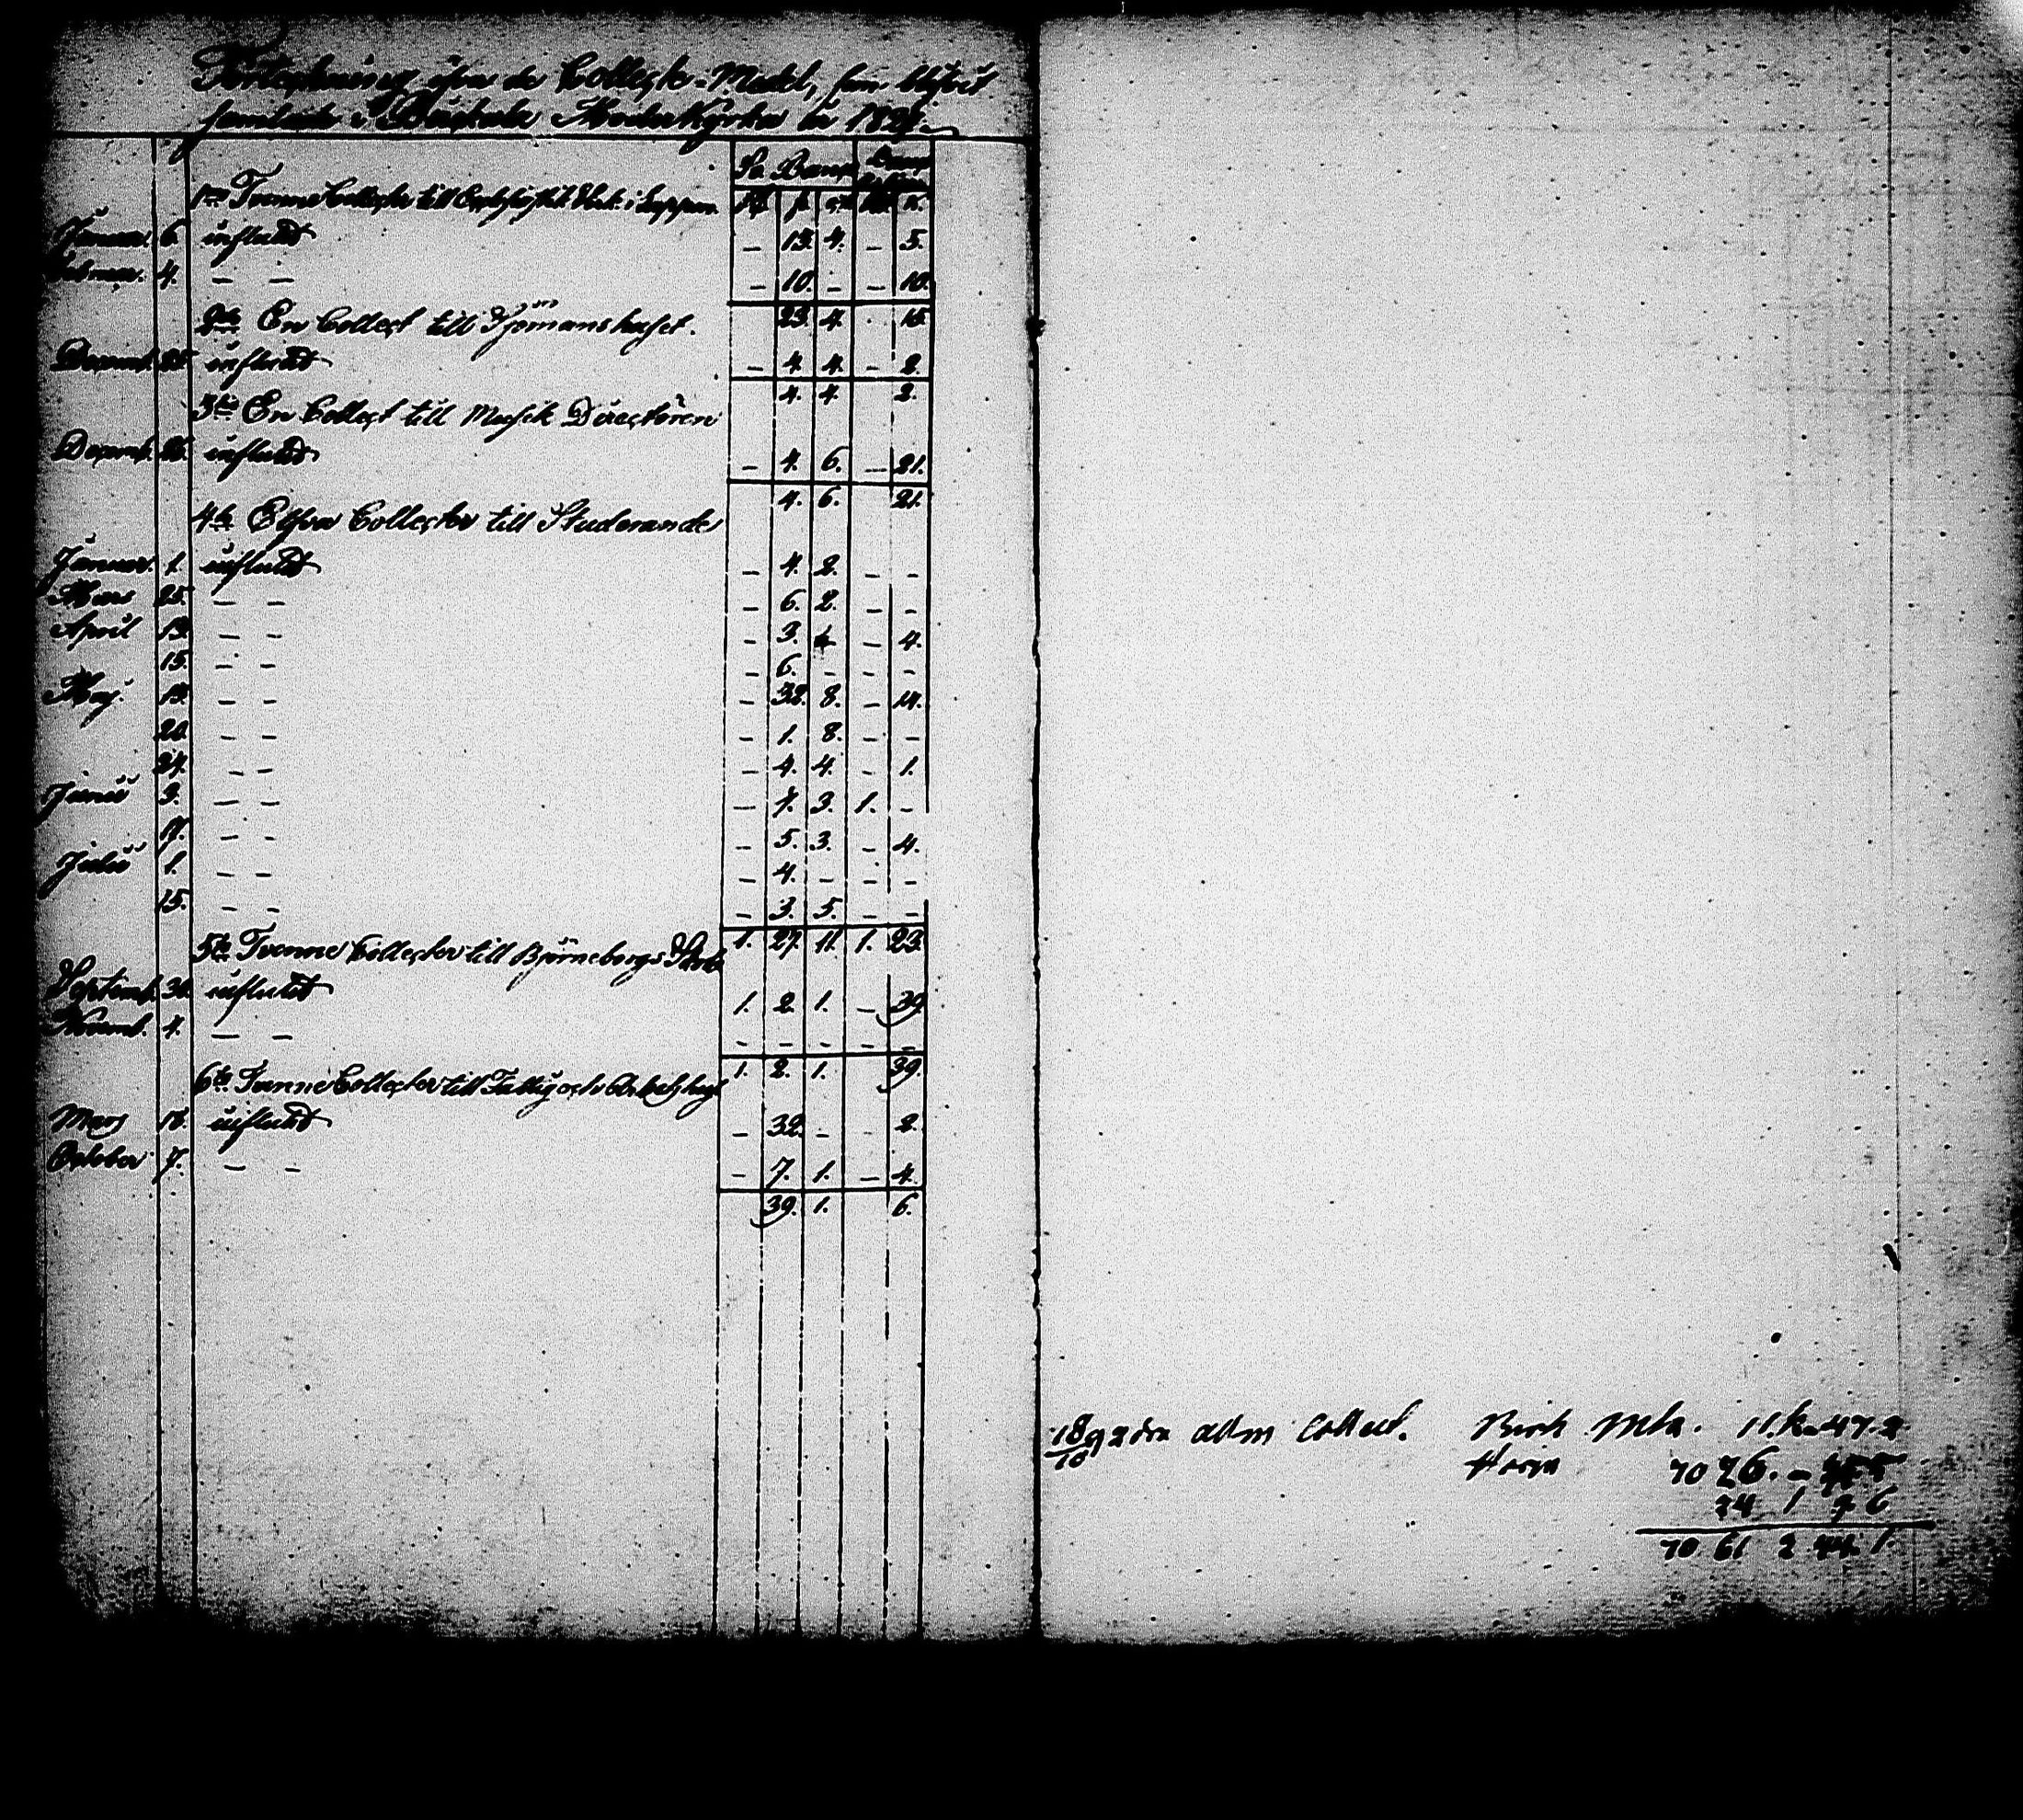 Förteckning öfver de Collect-Medel, som blifvit
samlade i Moderkyrka år 182
Sv. Banco
1mo Tvenne Collecter till i Lappm.
Januar. 6. influtit — 13. 4. — 5.
Februar. 4. — — — 10. — — 10.
23. 4. 15.
2do En Collect till Sjömanshuset.
Decemb. 25. influtit — 4. 4. — 2.
4. 4. 2.
3tio En Collect till Musik Directören
Decemb. 26. influtit — 4. 6. — 21.
4. 6. 21.
4to Elfva Collecter till Studerande
Januar. 1. influtit — 4. 2. — —
Mars 25. — — — 6. 2. — —
April 13. — — — 3. — 4.
15. — — — 6. — — —
Maj. 13. — — — 32. 8. — 14.
20. — — — 1. 8. — —
24. — — — 4. 4. — 1.
Junii 3. — — — 1. 3. 1. —
17. — — — 5. 3. — 4.
Julii 1. — — — 4. — — —
15. — — — 3. 5. — —
1. 27. 11. 1. 23.
5to Tvenne Collecter till Björneborgs
Septemb. 30. influtit 1. 2. 1. — 39.
Novemb. 4. — — — — — — —
1. 2. 1. 39.
6to Tvenne Collecter till Fattig och Arbetshus
Mars 18. influtit — 32. — — 2.
October 7. — — — 7. 1. — 4.
39. 1. 6.
allm Collect. Mta. 11.k. 47.2
70 26. —
34 1 7 6
70 61 2 44. 1.